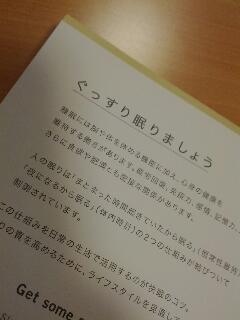 ぐっすり眠りましょう
睡眠には脳や体を休める機能に加え、心身の健康を
維持する働きがあります。疲労回復、免疫力、感情、記憶力、
さらに食欲や肥満とも密接な関係があります。
人の眠りは「まとまった時間起きていたから眠る」(恒常性維持
「夜になるから眠る」(体内時計)の2つの仕組みが結びついて
制御されています。
この仕組みを日常の生活で活用するのが快眠のコツ。
りの質を高めるために、ライフスタイルを見直して
Get some